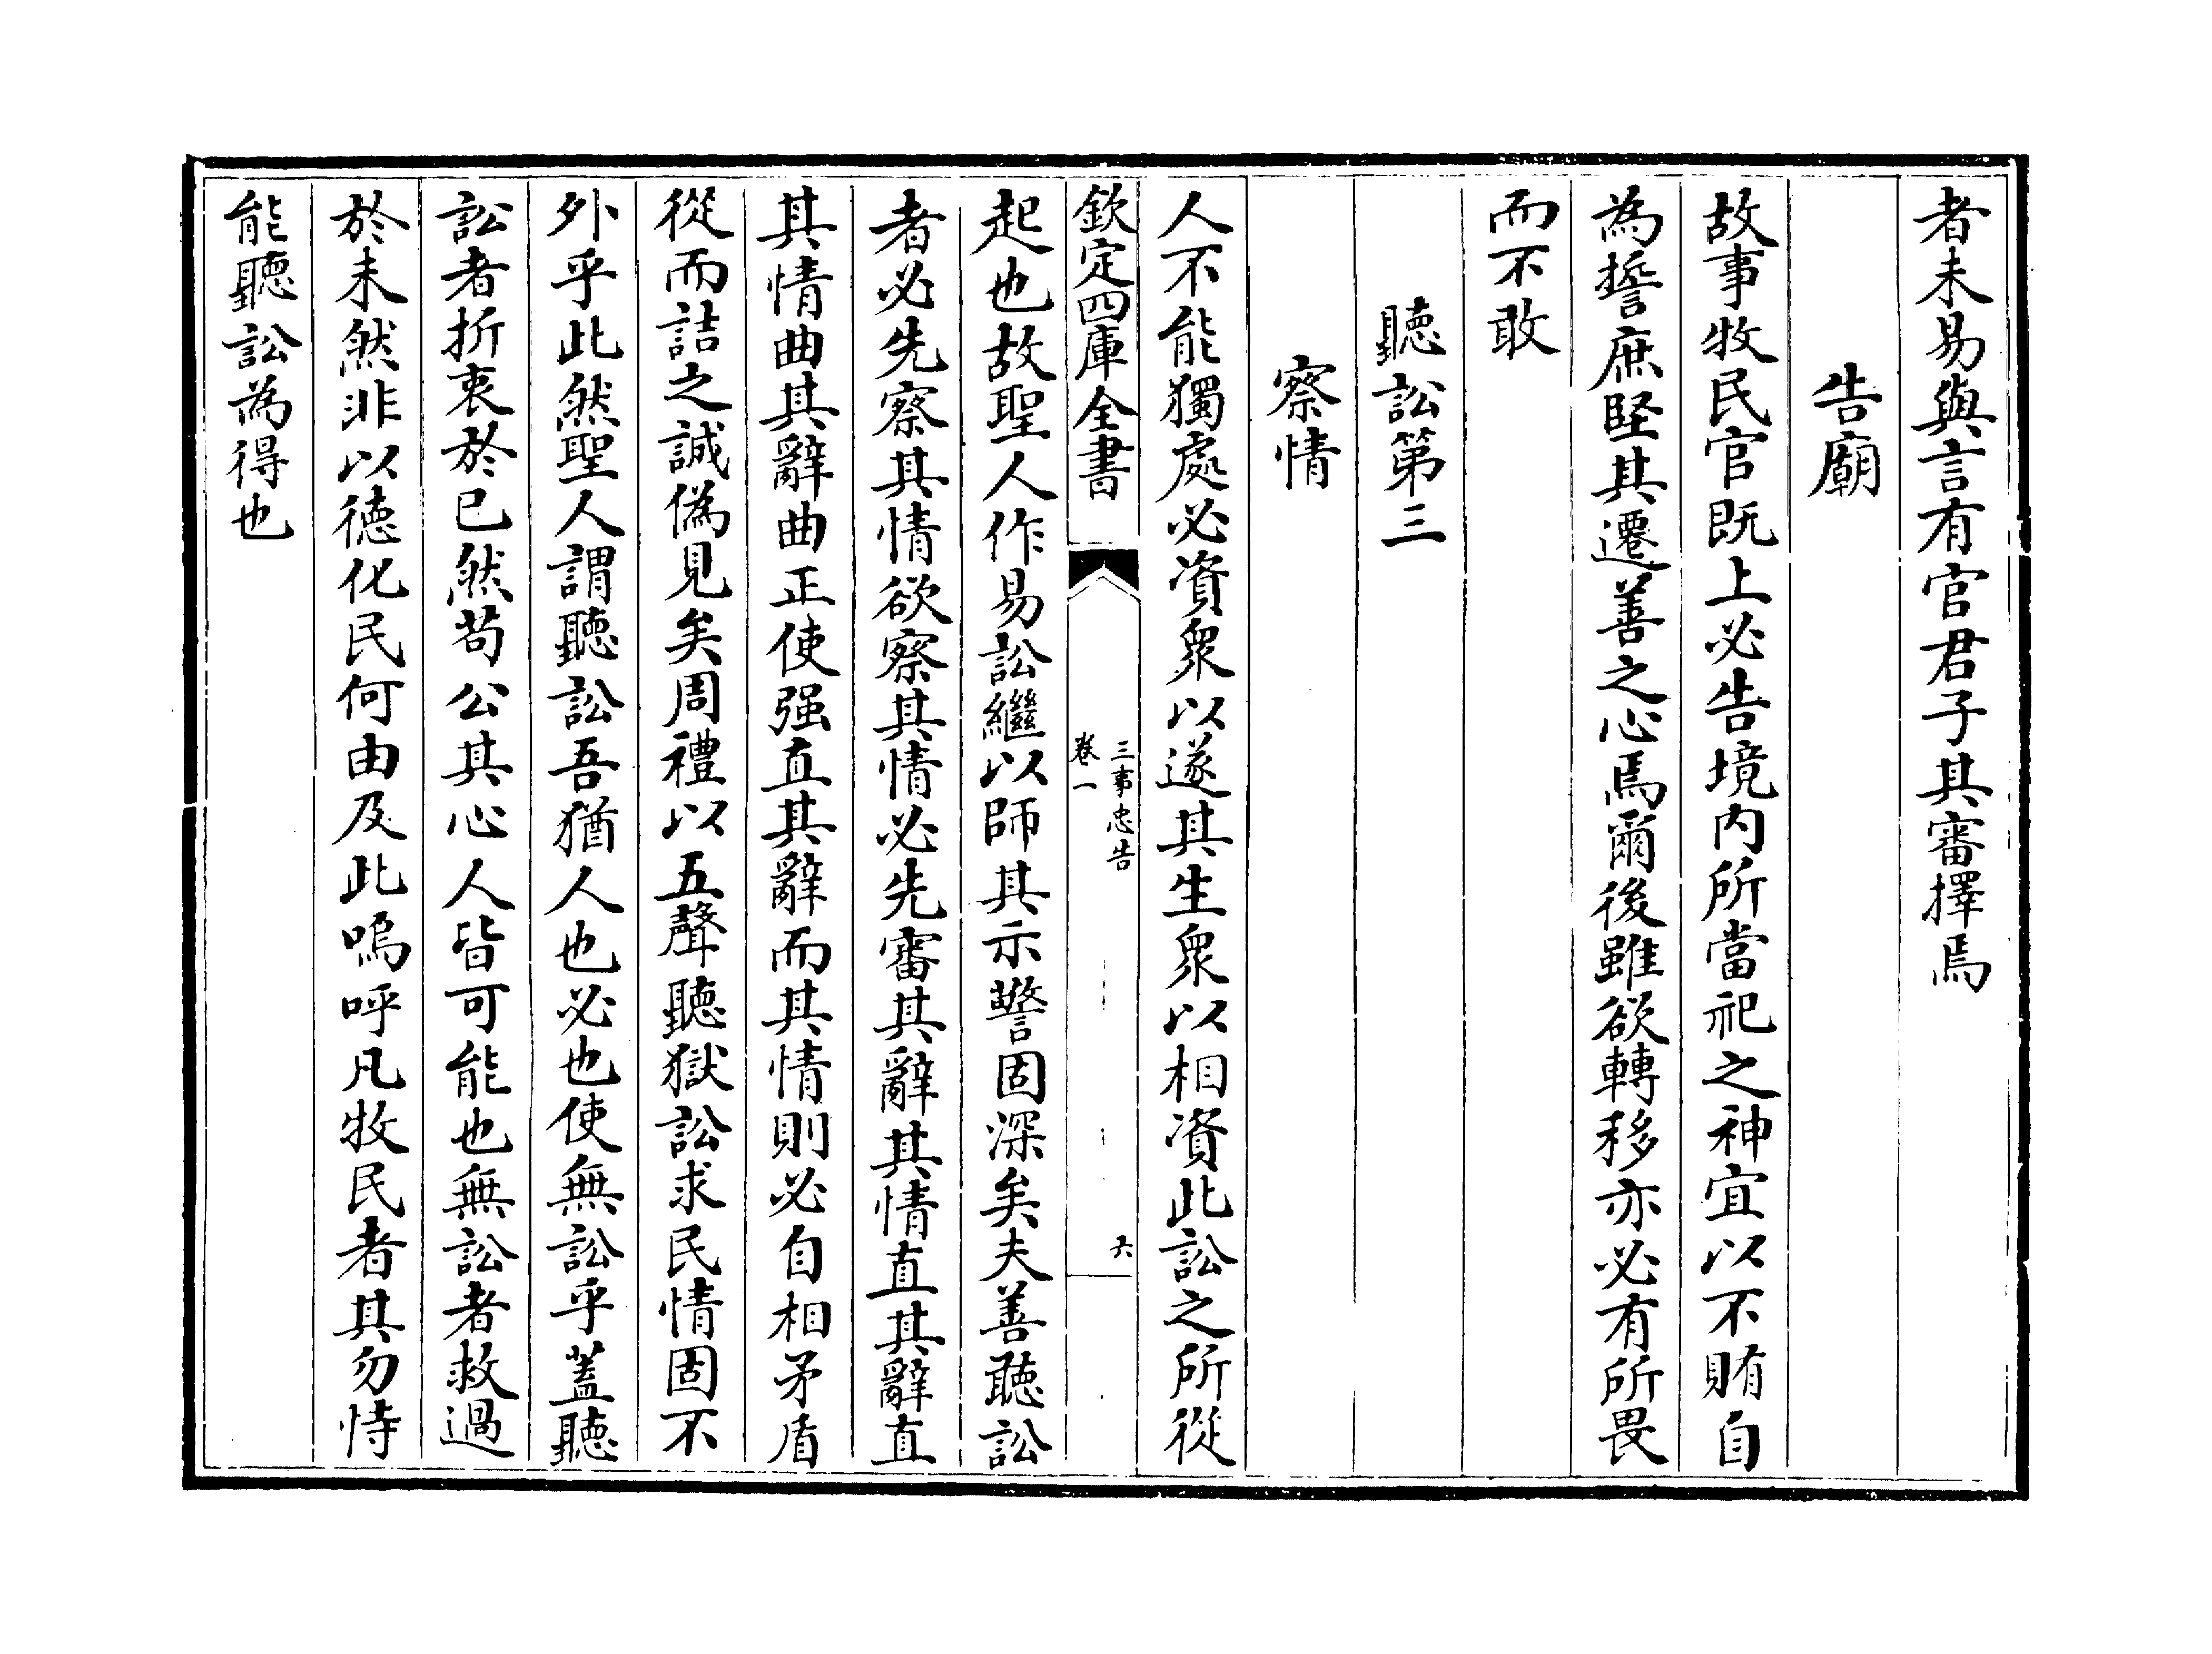 者未易與言有官君子其審擇焉
告廟
故事牧民官既上必告境内所當祀之神宜以不賄自
為誓庶堅其遷善之心焉爾後雖欲轉移亦必有所畏
而不敢
聽訟第三
察情
人不能獨處必資衆以遂其生衆以相資此訟之所從
欽定四庫全書
三事忠告
卷一
六
起也故聖人作易訟繼以師其示警固深矣夫善聽訟
者必先察其情欲察其情必先審其辭其情直其辭直
其情曲其辭曲正使强直其辭而其情則必自相矛盾
從而詰之誠偽見矣周禮以五聲聽獄訟求民情固不
外乎此然聖人謂聽訟吾猶人也必也使無訟乎蓋聽
訟者折衷於已然苟公其心人皆可能也無訟者救過
於未然非以徳化民何由及此嗚呼凡牧民者其勿恃
能聽訟為得也